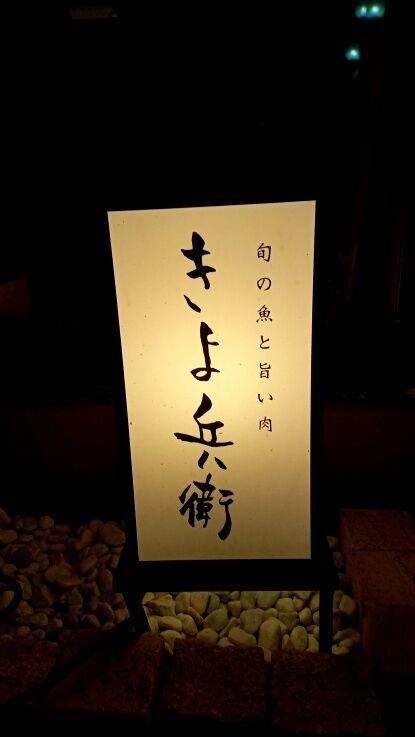 旬の魚と旨い肉
きよ兵衛